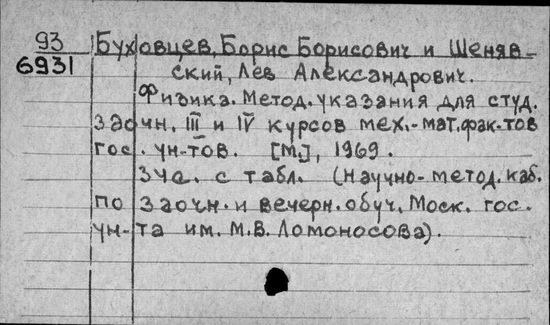 93
6931
Буховцев, Борис Борисович и Шеняв-
ский, Лев Александрович.
Физика. Метод. указания для студ.
заочн. III и IV курсов мех.-мат. фак-тов
гос. ун-тов. [М.], 1969.
34с. с табл. (Научно-метод. каб.
по заочн. и вечерн. обуч. Моск. гос.
ун-та им. М.В. Ломоносова).